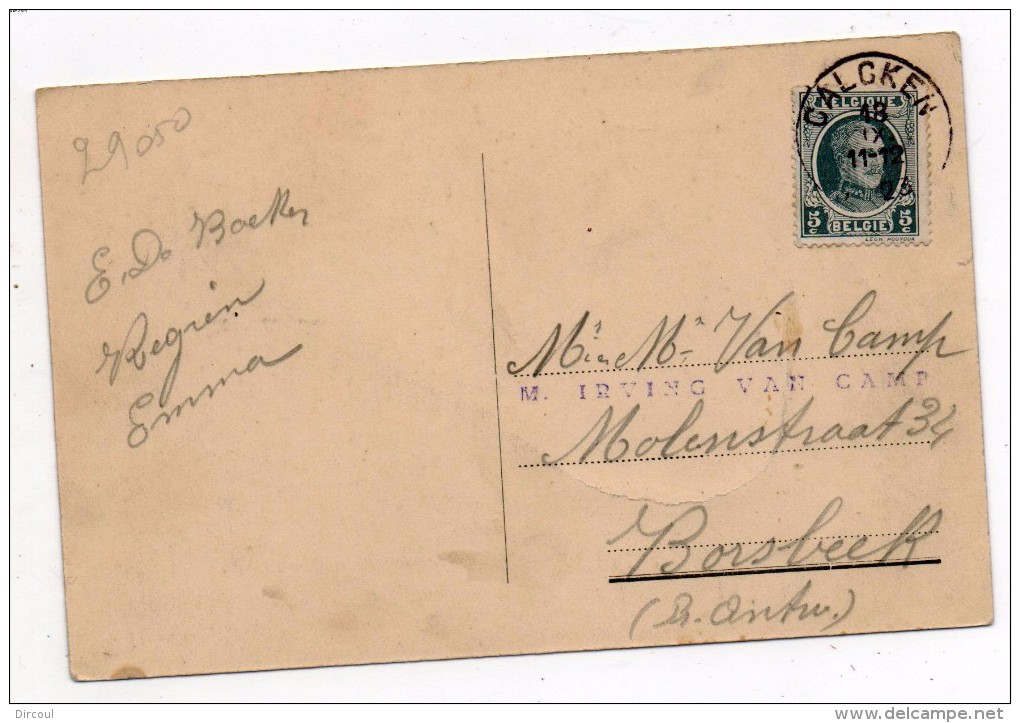 29050
E. De Backer
Regien
Emma
CALCKEN
18
IX
11-12
29
BELGIQUE
5c 5c
BELGIË
Mr & Mme Van Camp
M. IRVING VAN CAMP
Molenstraat 34
Borsbeek
(Pr. Antw.)
Dircoul
delcampe.net